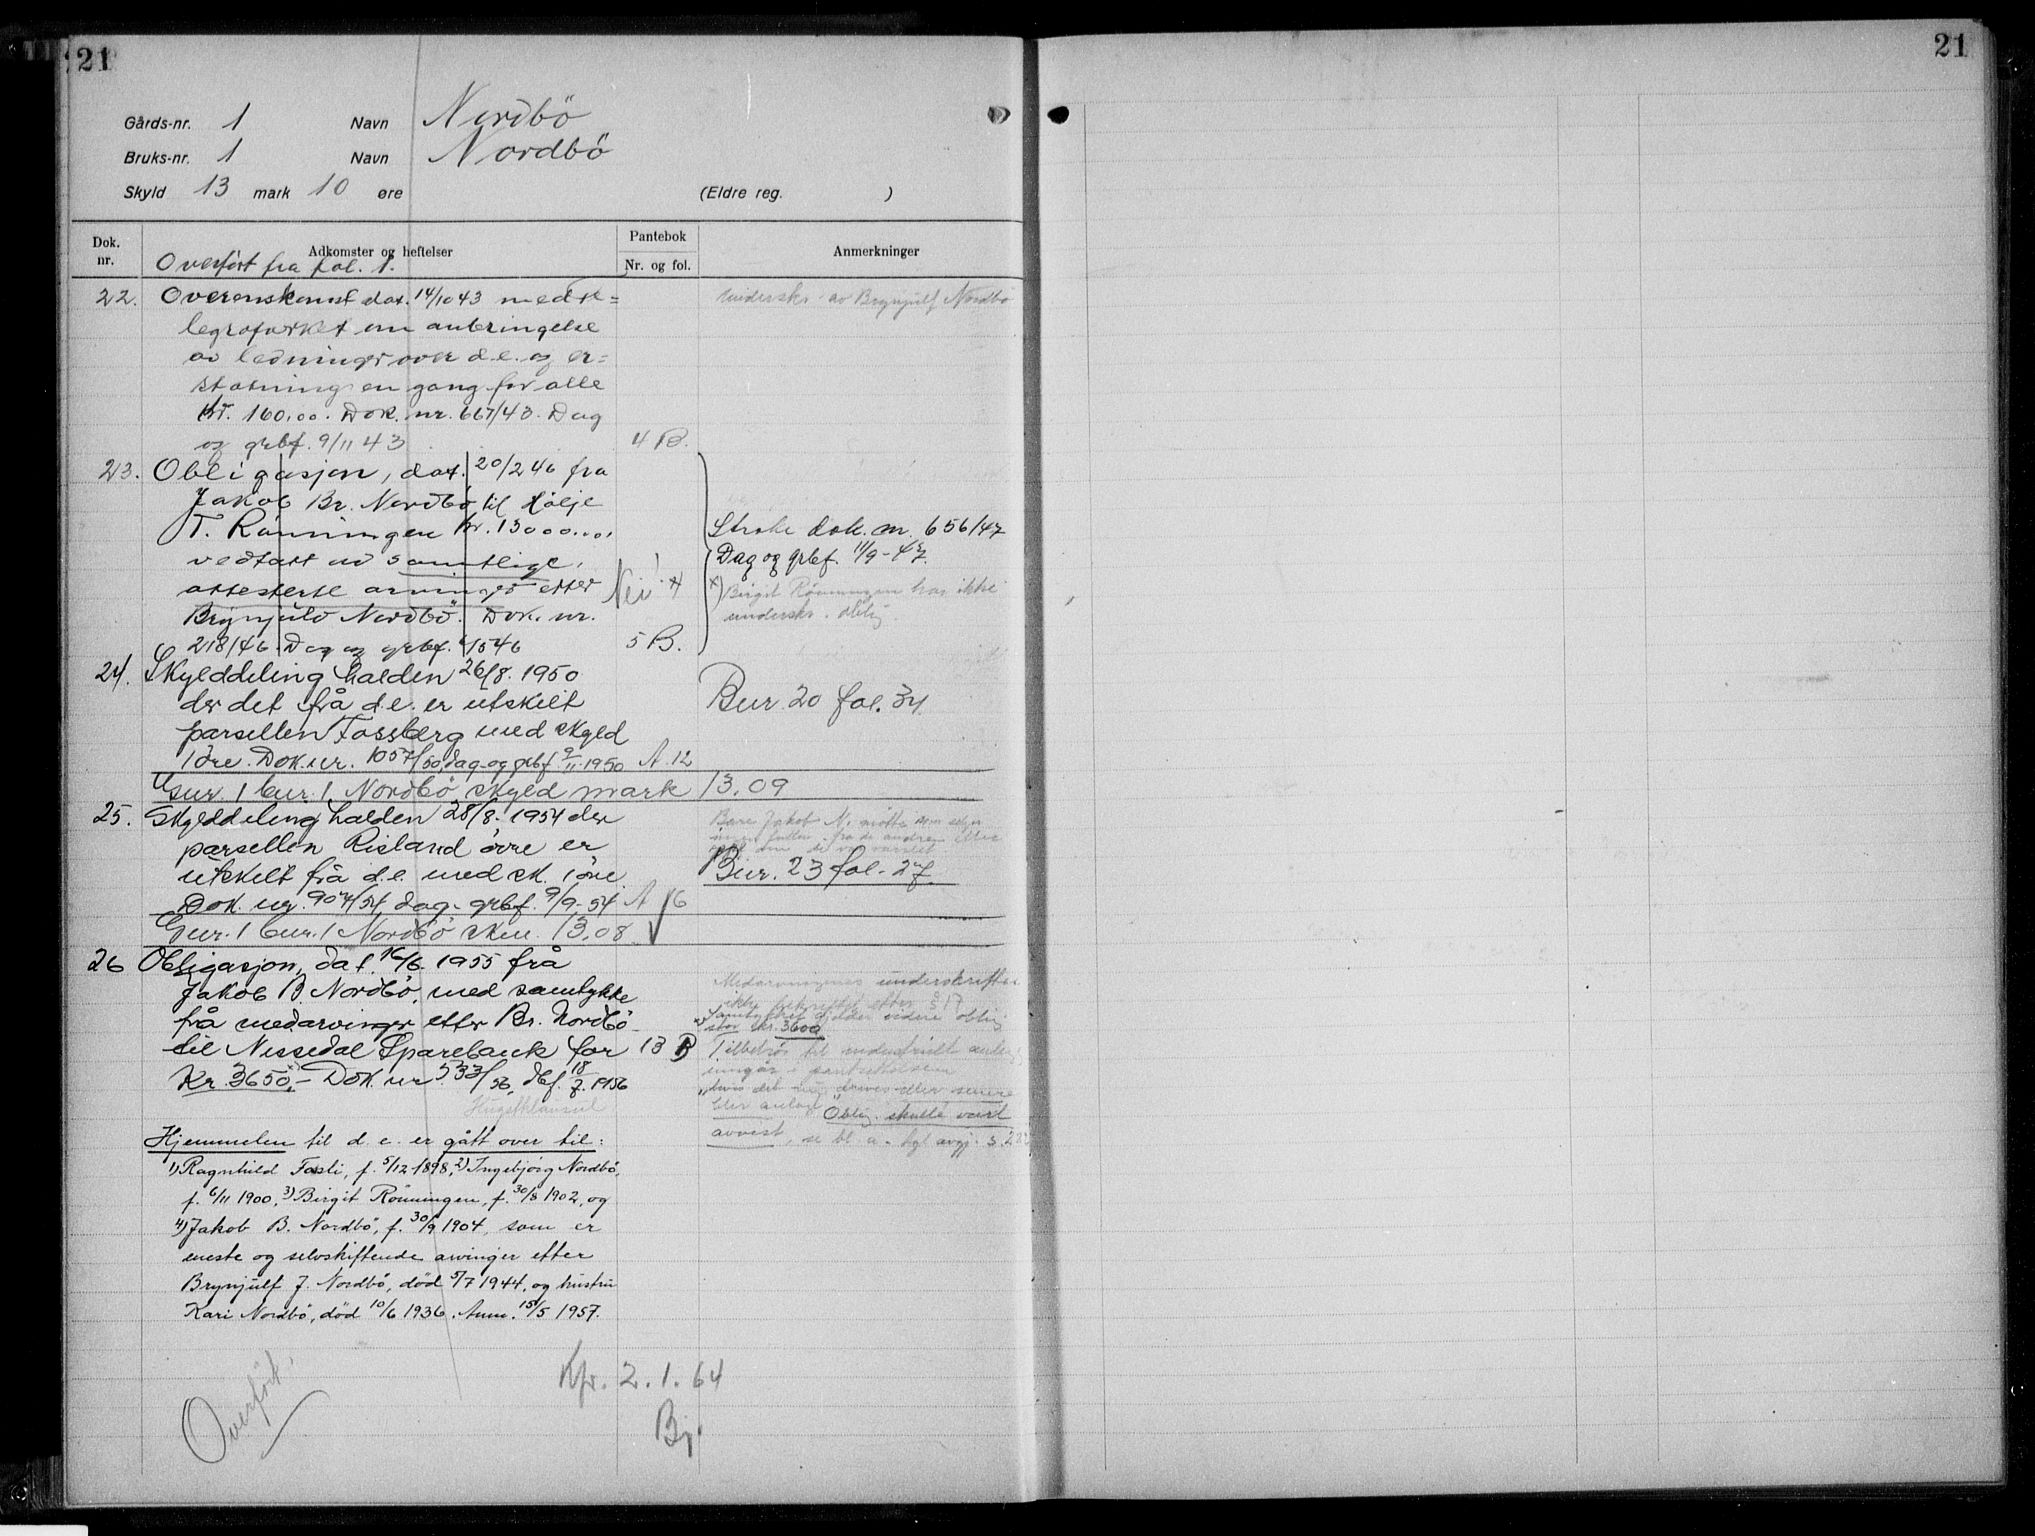 21
21
Gårds-nr. 1 Navn Nordbö
Bruks-nr. 1 Navn Nordbö
Skyld 13 mark 10 øre (Eldre reg. )
Dok. nr. Adkomster og heftelser Pantebok Nr. og fol. Anmerkninger
Overfört fra fol. 1.
22. Overenskomst dat. 14/10 43 med te= undersks. av Brynjulf Nordbö
legrafverket om anbringelse
av ledninger over d.e. og er=
statning en gang for alle
kr. 160.00. Dok. nr. 667/43. Dag
og grbf. 9/11 43 4 B.
23. Obligasjon, dat. 20/2 46 fra
Jakob Br. Nordbö til Hölje
T. Rönningen kr. 13000.00, Stroke dok. nr. 656/47
vedtatt av samtlige, Dag og grbf. 11/9-47.
attesterte arvinger etter Nei x x) Birgit Rönningen har ikke
Brynjulv Nordbö. Dok. nr. undersks. oblig.
218/46. Dag og grbf. 4/5 46 5 B.
24. Skylddeling halden 26/8. 1950
der det frå d.e. er utskilt Bnr 20 fol. 34.
parsellen Fossberg med skyld
1 öre. Dok. nr. 1057/50, dag- og grbf. 9/11-1950 A. 12
Gnr. 1 bnr. 1 Nordbö skyld mark 13.09
25. Skylddeling halden 28/8. 1954 der Bare Jakob N. mötte som selger
parsellen Risland övre er
utskilt frå d.e. med sk. 1 öre. Bnr. 23 fol. 27.
Dok. nr. 907/54 dag- grbf. 9/9-54 A 16
Gnr. 1 bnr. 1 Nordbö skm. 13,08
26 Obligasjon, dat. 16/6. 1955 frå
Jakob B. Nordbö, med samtykke Medarvingenes underskrifter
frå medarvinger etter Br. Nordbö ikke bekreftet etter § 17
x) Samtykket gjelder videre oblig.
stor kr. 3600
til Nissedal Sparebank for 13 B Tilbehör til industrielt anlegg
Kr. 3650,- Dok. nr 533/56, dbf. 18/7. 1956 inngår i pantsettelsen
"hvis det nu drives eller senere
Hugstklausul blir anlagt" Oblig. skulle vært
Hjemmelen til d.e. er gått over til: avvist, se bl. a.
1) Ragnhild Fasli, f. 5/12-1898, 2) Ingebjörg Nordbö,
f. 6/11 1900, 3) Birgit Rönningen, f. 30/8 1902, og
4) Jakob B. Nordbö, f. 30/9 1904, som er
eneste og selvskiftende arvinger etter
Brynjulf J. Nordbö, död 5/7 1944, og hustru
Kari Nordbö, död 10/6 1936. Anm. 15/5 1957.
Overfört.
Kfr. 2.1.64
Bj.